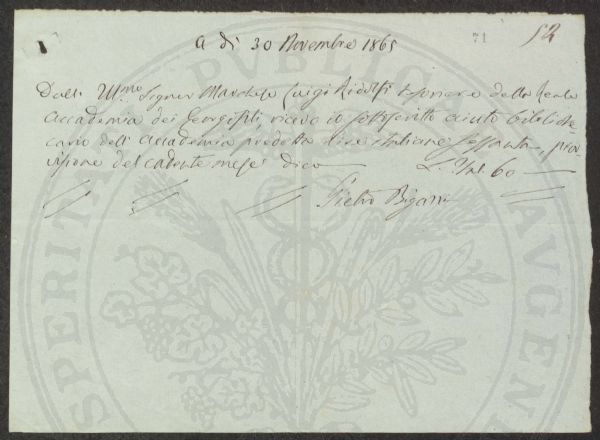 a dì 30 Novembre 1865
71
52
Dall' Ill.mo Signor Marchese Luigi Ridolfi tesoriere della Reale
Accademia dei Georgofili, ricevo io sottoscritto aiuto bibliote-
cario dell' Accademia predetta lire italiane sessanta, prov-
visione del cadente mese dico — L. Ital. 60 —
Pietro Bigazzi
PROSPERITATI PUBLICAE AUGENDAE